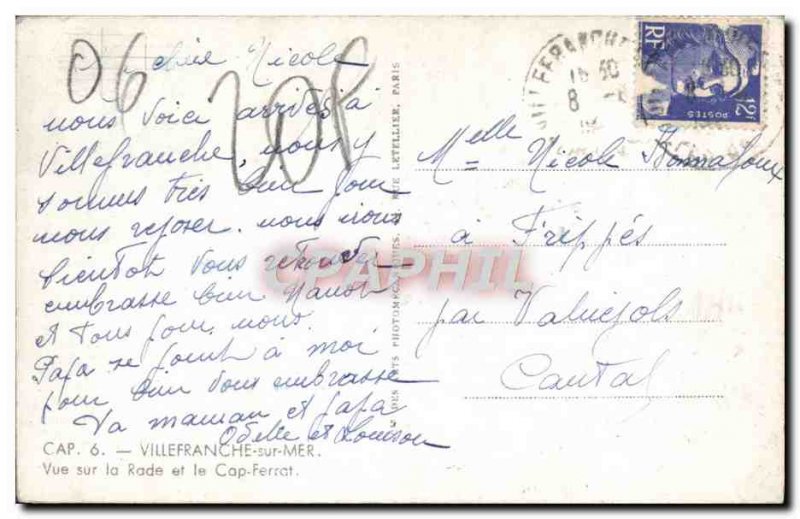 06
20F
chère Nicole
nous voici arrivés à
Villefranche, nous y
sommes très bien pour
nous reposer. nous irons
bientôt vous retrouver
embrasse bien Manou
et tous pour nous.
Papa se joint à moi
pour bien vous embrasser
Ta maman et papa
Odette et Louison
CAP. 6. — VILLEFRANCHE-sur-MER.
Vue sur la Rade et le Cap-Ferrat.
ARTS PHOTOMECANIQUES, RUE LETELLIER, PARIS
RF
12F
POSTES
VILLEFRANCHE
Melle Nicole
à Frippés
par
Cantal
CPAPHIL